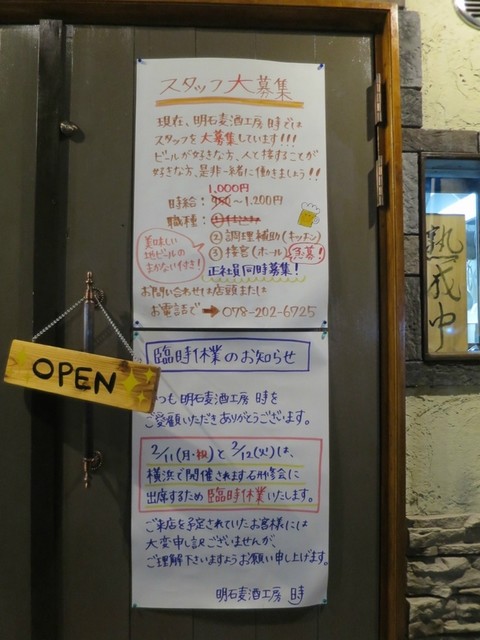 スタッフ大募集
現在、明石麦酒工房 時では
スタッフを大募集しています!!!
ビールが好きな方、人と接することが
好きな方、是非一緒に働きましょう!!
1,000円
時給: ~1,200円
職種: ①
②調理補助(キッチン)
③接客(ホール)急募!
美味しい
地ビールの
まかない付き!
正社員同時募集!
お問い合わせは店頭または
お電話で➡078-202-6725
OPEN
臨時休業のお知らせ
いつも明石麦酒工房 時を
ご愛顧いただきありがとうございます。
2/11(月・祝)と2/12(火)は、
横浜で開催されます研修会に
出席するため臨時休業いたします。
ご来店を予定されていたお客様には
大変申し訳ございませんが、
ご理解下さいますようお願い申し上げます。
明石麦酒工房 時
熟成中